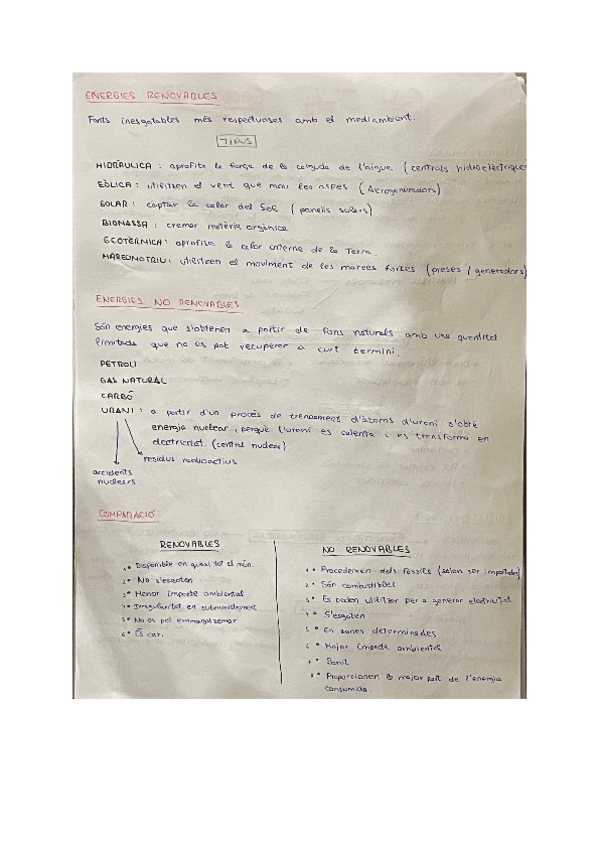 ENERGIES RENOVABLES
Fonts inesgotables més respectuoses amb el mediambient.
TIPUS
HIDRÀULICA : aprofita la força de la caiguda de l'aigua ( centrals hidroelèctriques
EÒLICA : utilitzen el vent que mou les aspes ( Aerogeneradors)
SOLAR : captar la calor del Sol ( panells solars)
BIOMASSA : cremar matèria orgànica
GEOTÈRMICA : aprofita la calor interna de la Terra.
MAREOMOTRIU : utilitzen el moviment de les marees fortes (preses / generadors)
ENERGIES NO RENOVABLES
Són energies que s'obtenen a partir de fons naturals amb una quantitat
limitada que no es pot recuperar a curt termini.
PETROLI
GAS NATURAL
CARBÓ
URANI : a partir d'un procés de trencament d'àtoms d'urani s'obté
energia nuclear, perquè l'urani es calenta i es transforma en
electricitat. (central nuclear)
residus radioactius
accidents
nuclears
COMPARACIÓ
RENOVABLES
1 • Disponible en quasi tot el món.
2 • No s'esgoten
3 • Menor impacte ambiental
4 • Irregularitat en subministrament
5 • No es pot emmagatzemar
6 • És car.
NO RENOVABLES
1 • Procedeixen dels fòssils (solen ser importades)
2 • Són combustibles
3 • Es poden utilitzar per a generar electricitat
4 • S'esgoten
5 • En zones determinades
6 • Major impacte ambiental
7 •
8 • Proporcionen la major part de l'energia
consumida